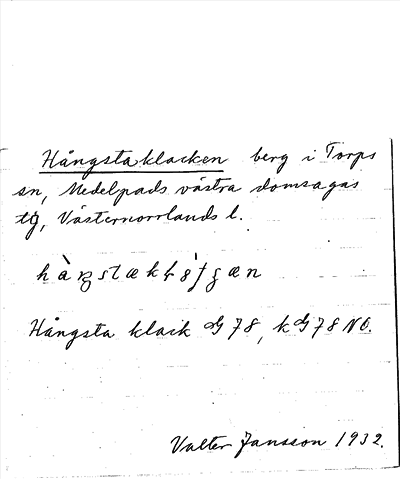 Hångstaklacken berg i Torps
sn, Medelpads västra domsagas
tg, Västernorrlands l.
Hångsta klack GJ 78, k GJ 78 NO.
Valter Jansson 1932.